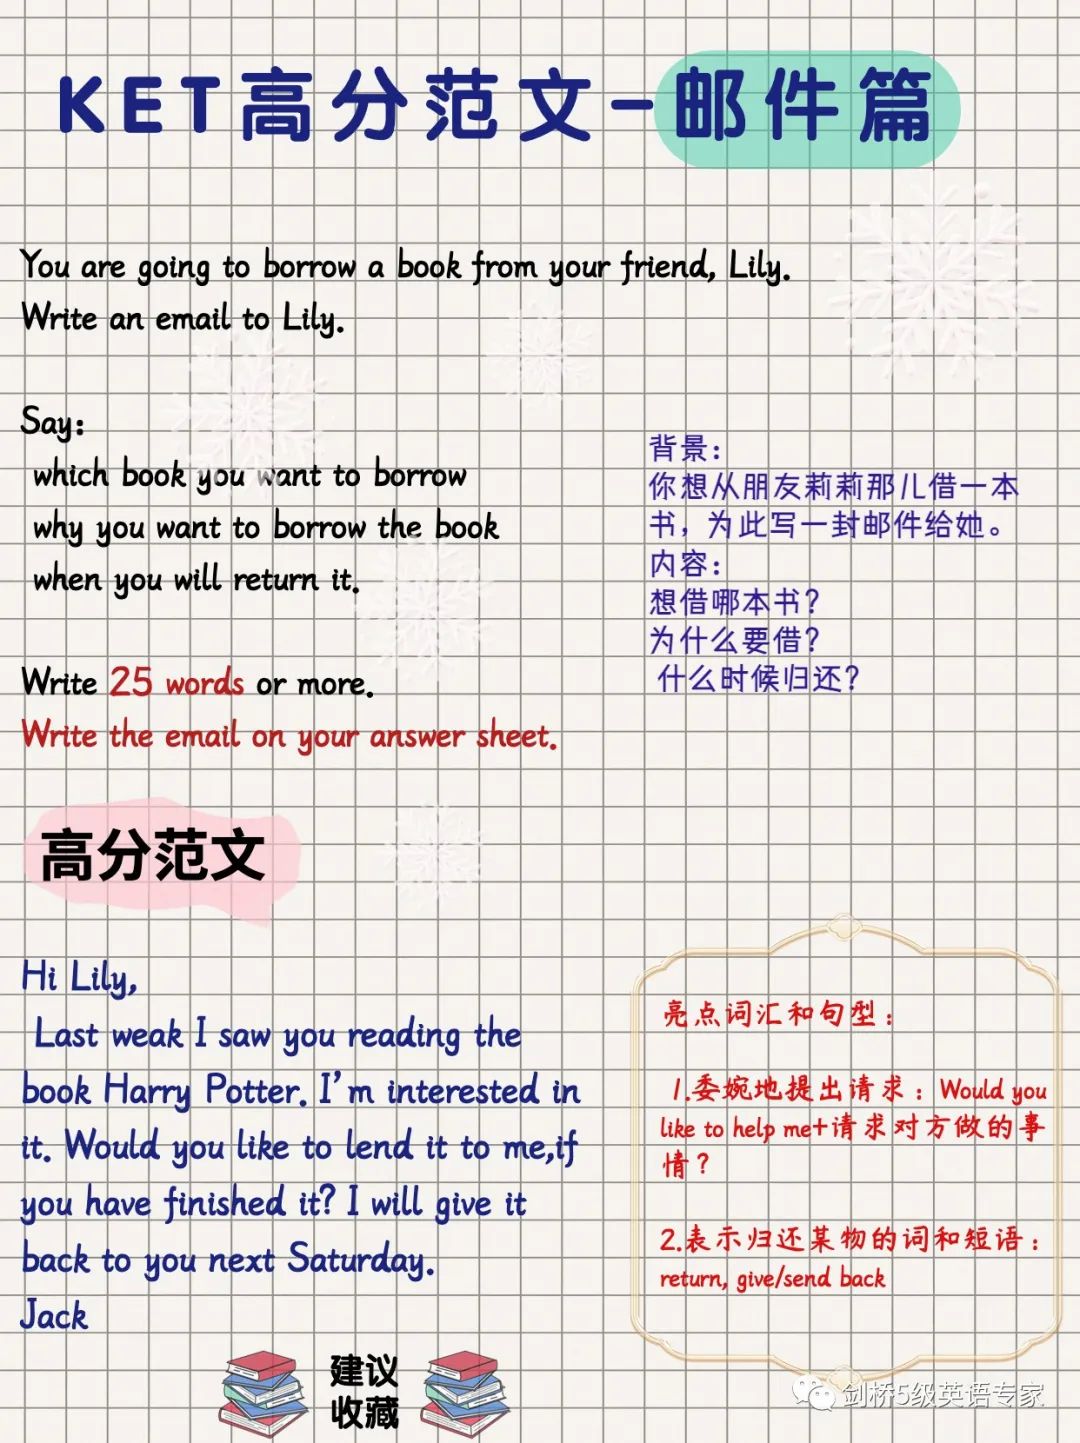 KET高分范文-邮件篇
You are going to borrow a book from your friend, Lily.
Write an email to Lily.
Say:
which book you want to borrow
why you want to borrow the book
when you will return it.
Write 25 words or more.
Write the email on your answer sheet.
背景：
你想从朋友莉莉那儿借一本
书，为此写一封邮件给她。
内容：
想借哪本书？
为什么要借？
什么时候归还？
高分范文
Hi Lily,
Last weak I saw you reading the
book Harry Potter. I'm interested in
it. Would you like to lend it to me,if
you have finished it? I will give it
back to you next Saturday.
Jack
亮点词汇和句型：
1.委婉地提出请求：Would you
like to help me+请求对方做的事
情？
2.表示归还某物的词和短语：
return, give/send back
建议
收藏
剑桥5级英语专家